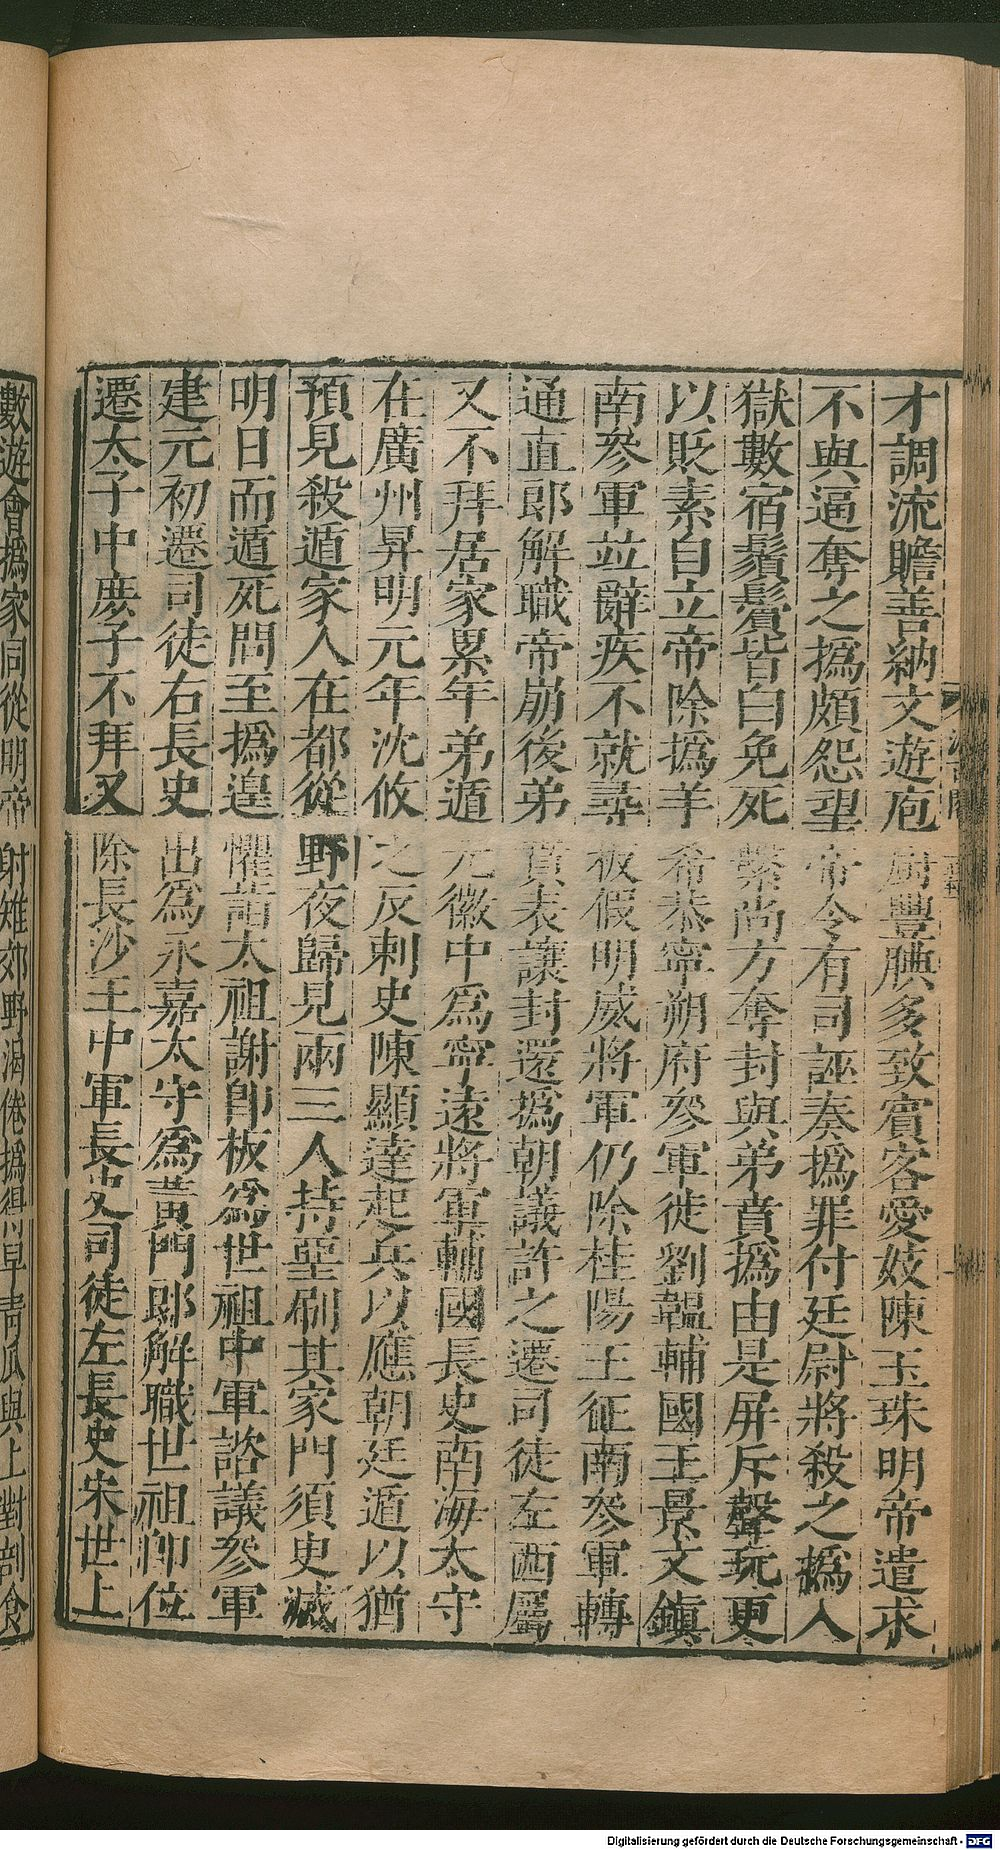 才調流贍善納文遊庖廚豐腆多致賓客愛妓陳玉珠明帝遣求
不與逼奪之撝頗怨望帝令有司誣奏撝罪付廷尉將殺之撝入
獄數宿鬚鬢皆白免死繫尚方奪封與弟賁撝由是屏斥聲玩更
以貶素自立帝除撝羊希恭寧朔府參軍徙劉韞輔國王景文鎮
南參軍並辭疾不就尋板假明威將軍仍除桂陽王征南參軍轉
通直郎解職帝崩後弟賁表讓封還撝朝議許之遷司徒左西屬
又不拜居家累年弟遁元徽中爲寧遠將軍輔國長史南海太守
在廣州昇明元年沈攸之反刺史陳顯達起兵以應朝廷遁以猶
預見殺遁家人在都從野夜歸見兩三人持堊刷其家門須臾滅
明日而遁死問至撝遑懼詣太祖謝即板爲世祖中軍諮議參軍
建元初遷司徒右長史出爲永嘉太守爲黃門郎解職世祖即位
遷太子中庶子不拜又除長沙王中軍長史司徒左長史宋世上
數遊會撝家同從明帝射雉郊野渴倦撝得早青瓜與上對剖食
Digitalisierung gefördert durch die Deutsche Forschungsgemeinschaft - DFG